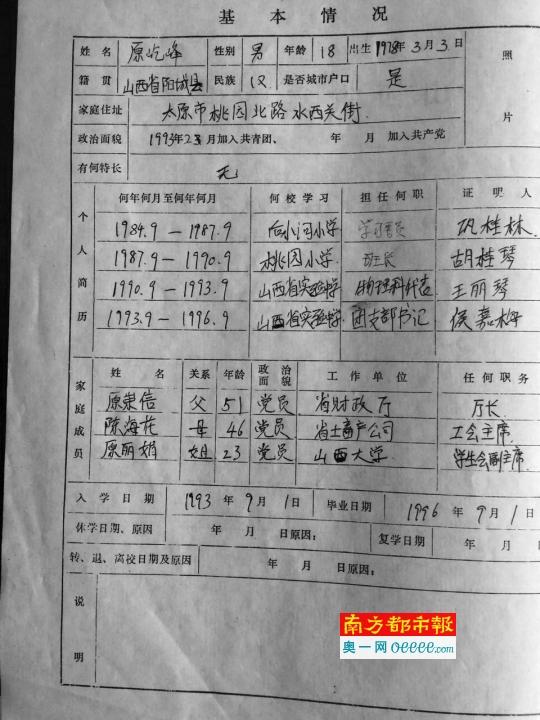 基本情况
姓名 原屹峰 性别 男 年龄 18 出生 1978年3月3日 照
籍贯 山西省阳城县 民族 汉 是否城市户口 是
家庭住址 太原市桃园北路水西关街
片
政治面貌 1993年2月加入共青团、 年 月 加入共产党
有何特长 无
个人简历
何年何月至何年何月 何校学习 担任何职 证明人
1984.9—1987.9 后小河小学 学习委员 巩桂林
1987.9—1990.9 桃园小学 班长 胡桂琴
1990.9—1993.9 山西省实验中学 物理科代表 王丽琴
1993.9—1996.9 山西省实验中学 团支部书记 侯嘉梅
家庭成员
姓名 关系 年龄 政治面貌 工作单位 任何职务
原崇信 父 51 党员 省财政厅 厅长
陈海花 母 46 党员 省土畜产公司 工会主席
原丽娟 姐 23 党员 山西大学 学生会副主席
入学日期 1993年9月1日 毕业日期 1996年9月1日
休学日期、原因 年 月 日原因: 复学日期 年 月
转、退、离校日期及原因 年 月 日原因:
说明
南方都市報
奥一网 oeeee.com